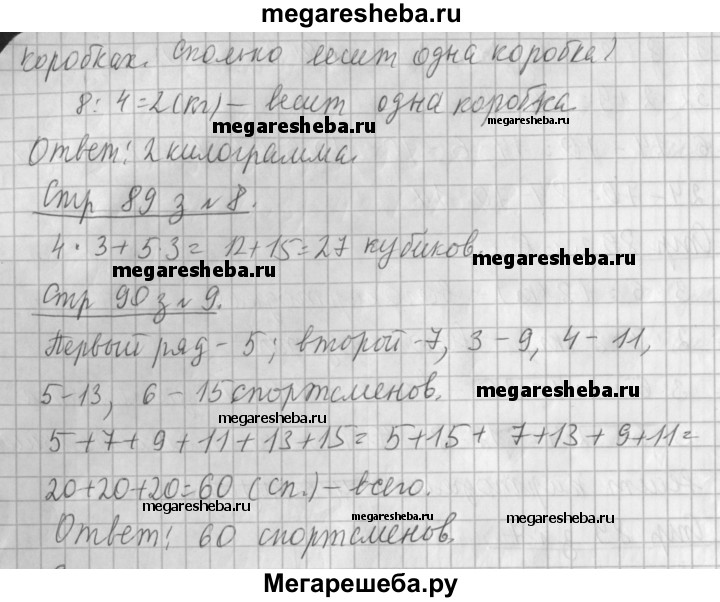 megaresheba.ru
коробках. Сколько весит одна коробка?
8 : 4 = 2 (кг) – весит одна коробка
megaresheba.ru
megaresheba.ru
Ответ: 2 килограмма.
Стр 89 з № 8.
4 · 3 + 5 · 3 = 12 + 15 = 27 кубиков.
megaresheba.ru
megaresheba.ru
Стр 90 з № 9.
Первый ряд - 5; второй - 7, 3 - 9, 4 - 11,
5 - 13, 6 - 15 спортсменов.
megaresheba.ru
megaresheba.ru
5 + 7 + 9 + 11 + 13 + 15 = 5 + 15 + 7 + 13 + 9 + 11 =
20 + 20 + 20 = 60 (сп.) – всего.
megaresheba.ru
megaresheba.ru
megaresheba.ru
Ответ: 60 спортсменов.
Мегарешеба.ру